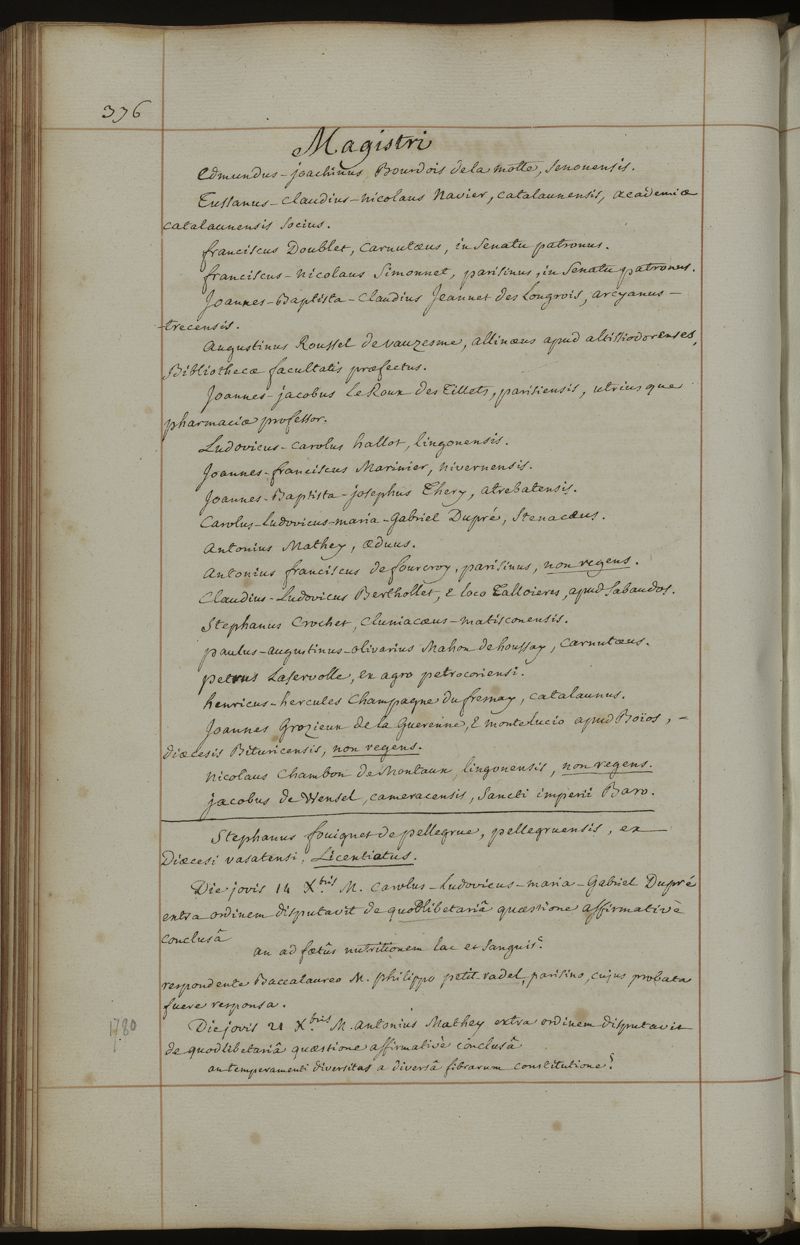 336
Magistri
Edmundus-joachinus Bourdois de la motte, Senonensis.
Tussanus-Claudius-nicolaus Navier, Catalaunensis, academiæ
Catalaunensis Socius.
franciscus Doublet, Carnutæus, in Senatu patronus.
franciscus-nicolaus Simonnet, parisinus, in Senatu patronus.
Joannes-Baptista-Claudius Jeannet des Longrois, arcyanus-
-trecensis.
Augustinus Roussel de vauzesme, allinæus apud altissiodorenses,
Bibliothecæ facultatis præfectus.
Joannes-jacobus Le Roux des Tillets, parisiensis, utriusque
pharmaciæ professor.
Ludovicus-Carolus hallot, lingonensis.
Joannes-franciscus Marinier, nivernensis.
Joannes-Baptista-josephus Thery, atrebatensis.
Carolus-Ludovicus-maria-Gabriel Dupré, Stenacæus.
Antonius Mathey, æduus.
Antonius franciscus de fourcroy, parisinus, non regens.
Claudius-Ludovicus Berthollet, è loco Talloieres, apud Sabaudos.
Stephanus Crochet, Cluniacæus-matisconensis.
paulus-augustinus-olivarius Mahon de houssay, Carnutæus.
petrus Laservolle, ex agro petrocoriensi.
henricus-hercules Champagne Dufresnay, Catalaunus.
Joannes Grozieux de la Guerenne, è monte lucio apud Boïos, -
diœcesis Bituricensis, non regens.
Nicolaus Chambon de Montaux, lingonensis, non regens.
jacobus de Wensel, cameracensis, Sancti imperii Baro.
Stephanus fouignet de pellegrue, pellegruensis, ex
Diœcesi vasatensi, Licentiatus.
Die jovis 14 Xbris M. Carolus-Ludovicus-maria-Gabriel Dupré
extra ordinem disputavit de quodlibetariâ quæstione affirmativè
Conclusâ
an ad fœtûs nutritionem lac et sanguis?
respondente Baccalaureo M. philippo petit-radel, parisino, cujus probata
fuere responsa.
1780
Die jovis 21 Xbris M. antonius Mathey extra ordinem disputavit
de quodlibetariâ quæstione affirmativè conclusâ
an temperamenti diversitas a diversâ fibrarum constitutione?